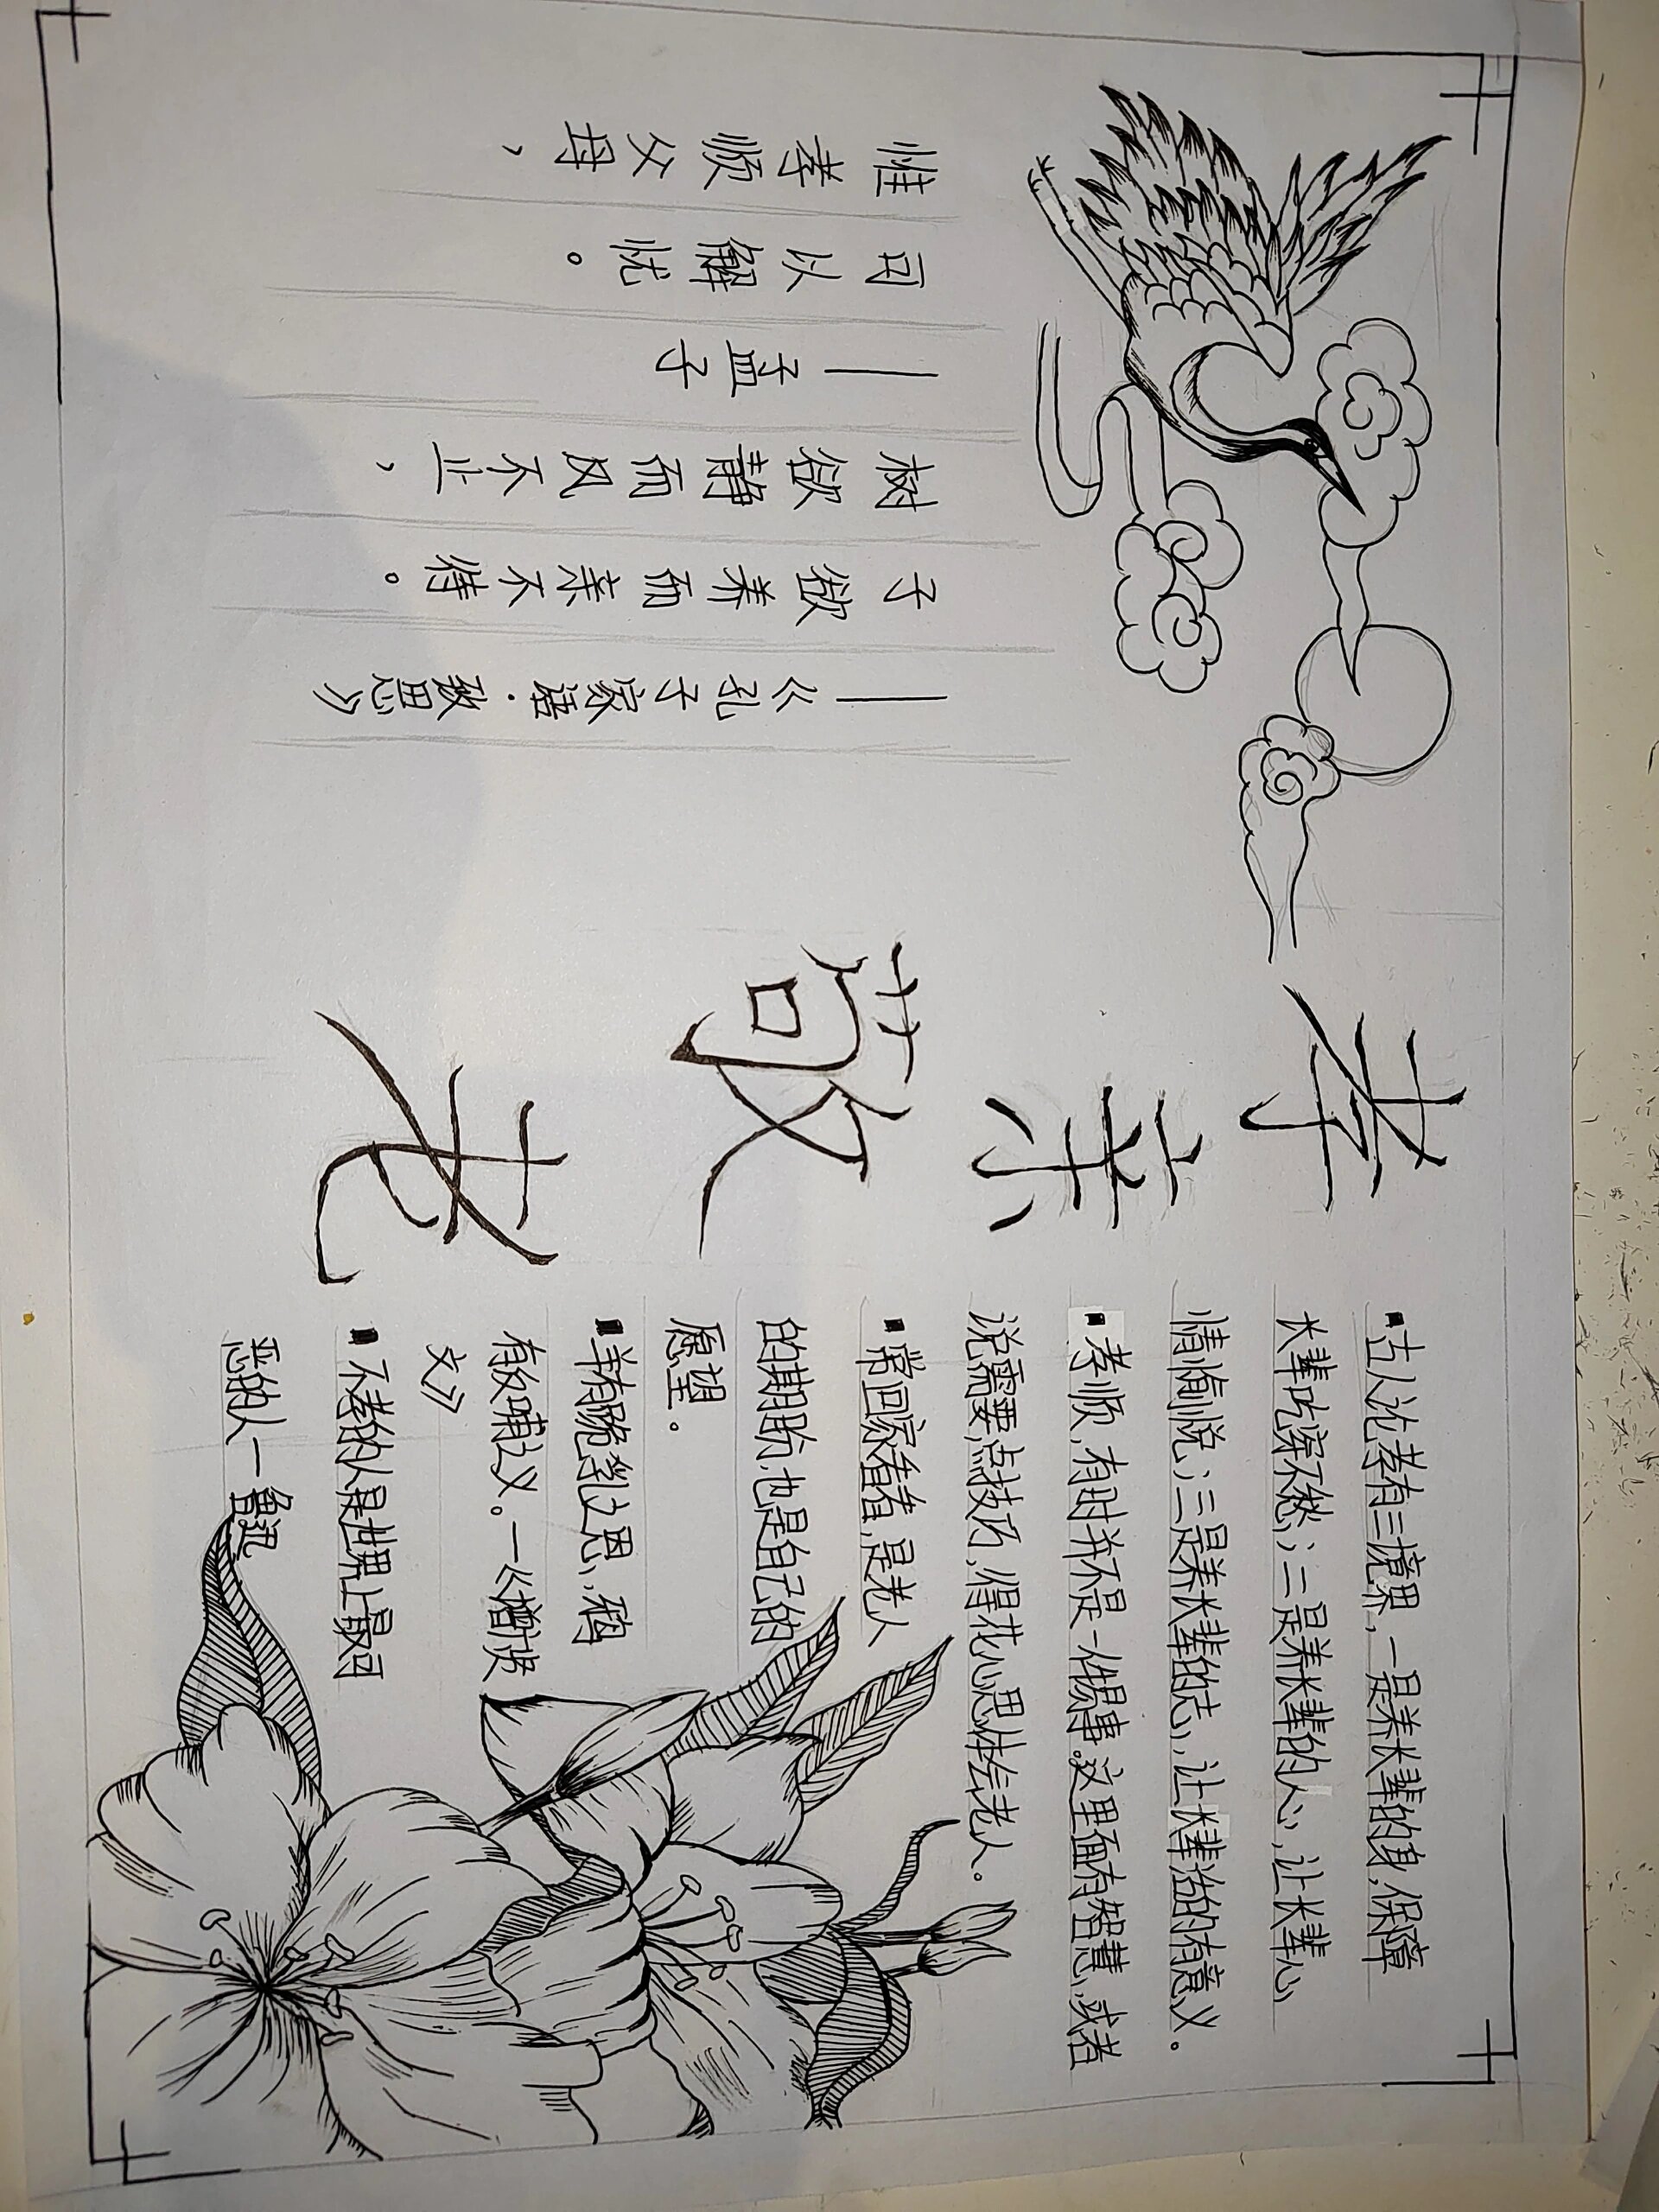 惟孝顺父母，
可以解忧。
——孟子
树欲静而风不止，
子欲养而亲不待。
——《孔子家语·致思》
孝亲敬老
▪古人论孝有三境界，一是养长辈的身，保障
长辈吃穿不愁；二是养长辈的心，让长辈心
情愉悦；三是养长辈的志，让长辈活的有意义。
▪孝顺，有时并不是一件易事。这里面有智慧，或者
说需要点技巧，得花心思体会老人。
▪常回家看看，是老人
的期盼，也是自己的
愿望。
▪羊有跪乳之恩，鸦
有反哺之义。—《增广贤
文》
▪不孝的人是世界上最可
恶的人—鲁迅